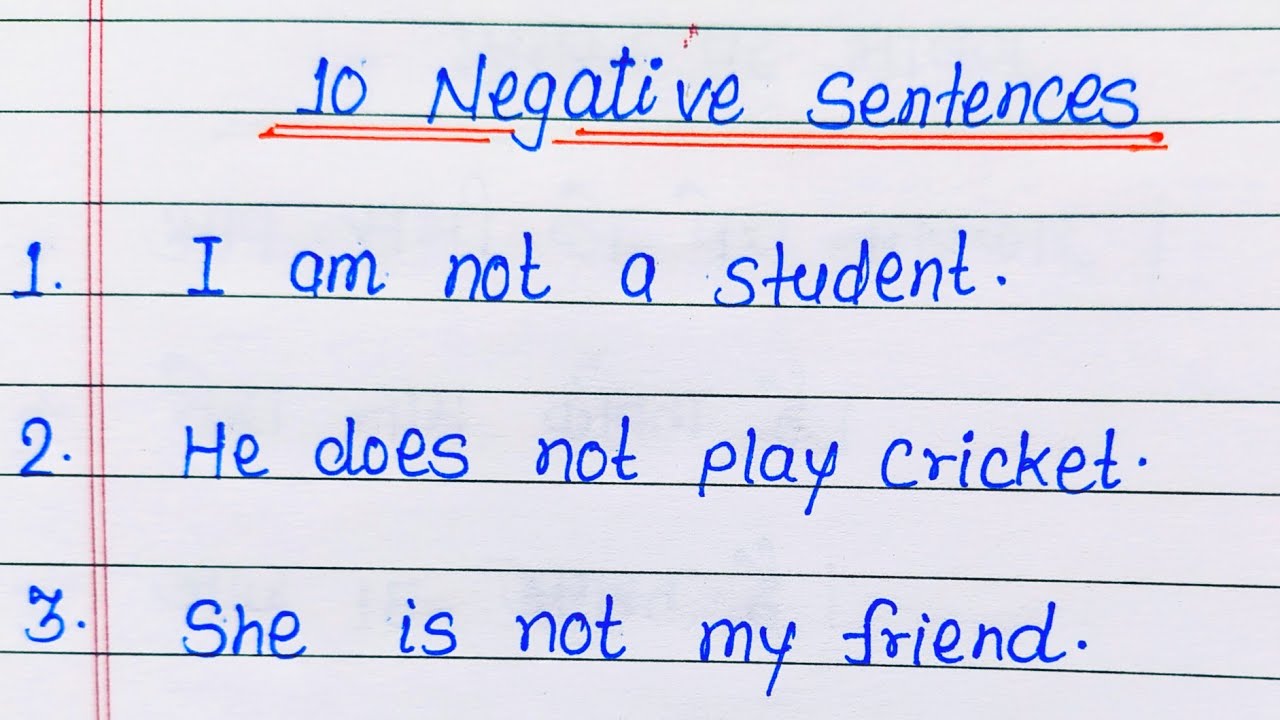 10 Negative Sentences
1. I am not a student.
2. He does not play cricket.
3. She is not my friend.